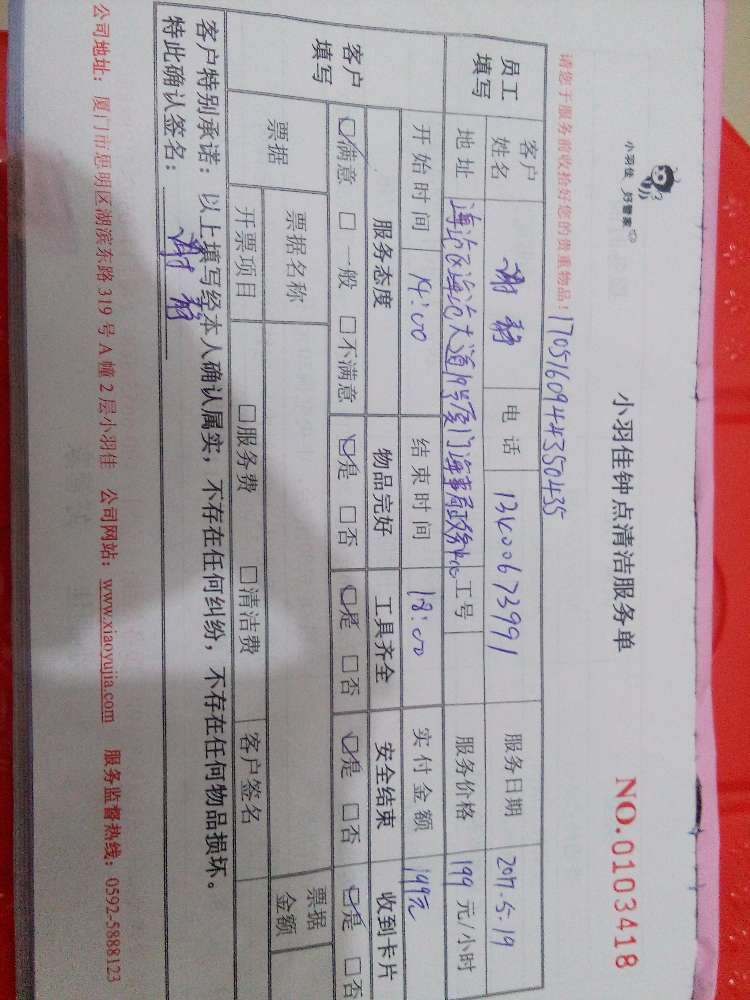 小羽佳 好管家
小羽佳钟点清洁服务单 NO.0103418
请您于服务前收拾好您的贵重物品！ 1705160944350435
员工填写 客户姓名 谢静 电话 13400673991 服务日期 2017.5.19
地址 海沧区海沧大道 厦门海事局政务中心 工号 服务价格 199 元/小时
客户填写 开始时间 14:00 结束时间 18:00 实付金额 199元
服务态度 物品完好 工具齐全 安全结束 收到卡片
☑满意 □一般 □不满意 ☑是 □否 ☑是 □否 ☑是 □否 ☑是 □否
票据 票据名称 票据金额
开票项目 □服务费 □清洁费 客户签名
客户特别承诺：以上填写经本人确认属实，不存在任何纠纷，不存在任何物品损坏。
特此确认签名： 谢静
公司地址：厦门市思明区湖滨东路 319 号 A 幢 2 层小羽佳 公司网站：www.xiaoyujia.com 服务监督热线：0592-5888123